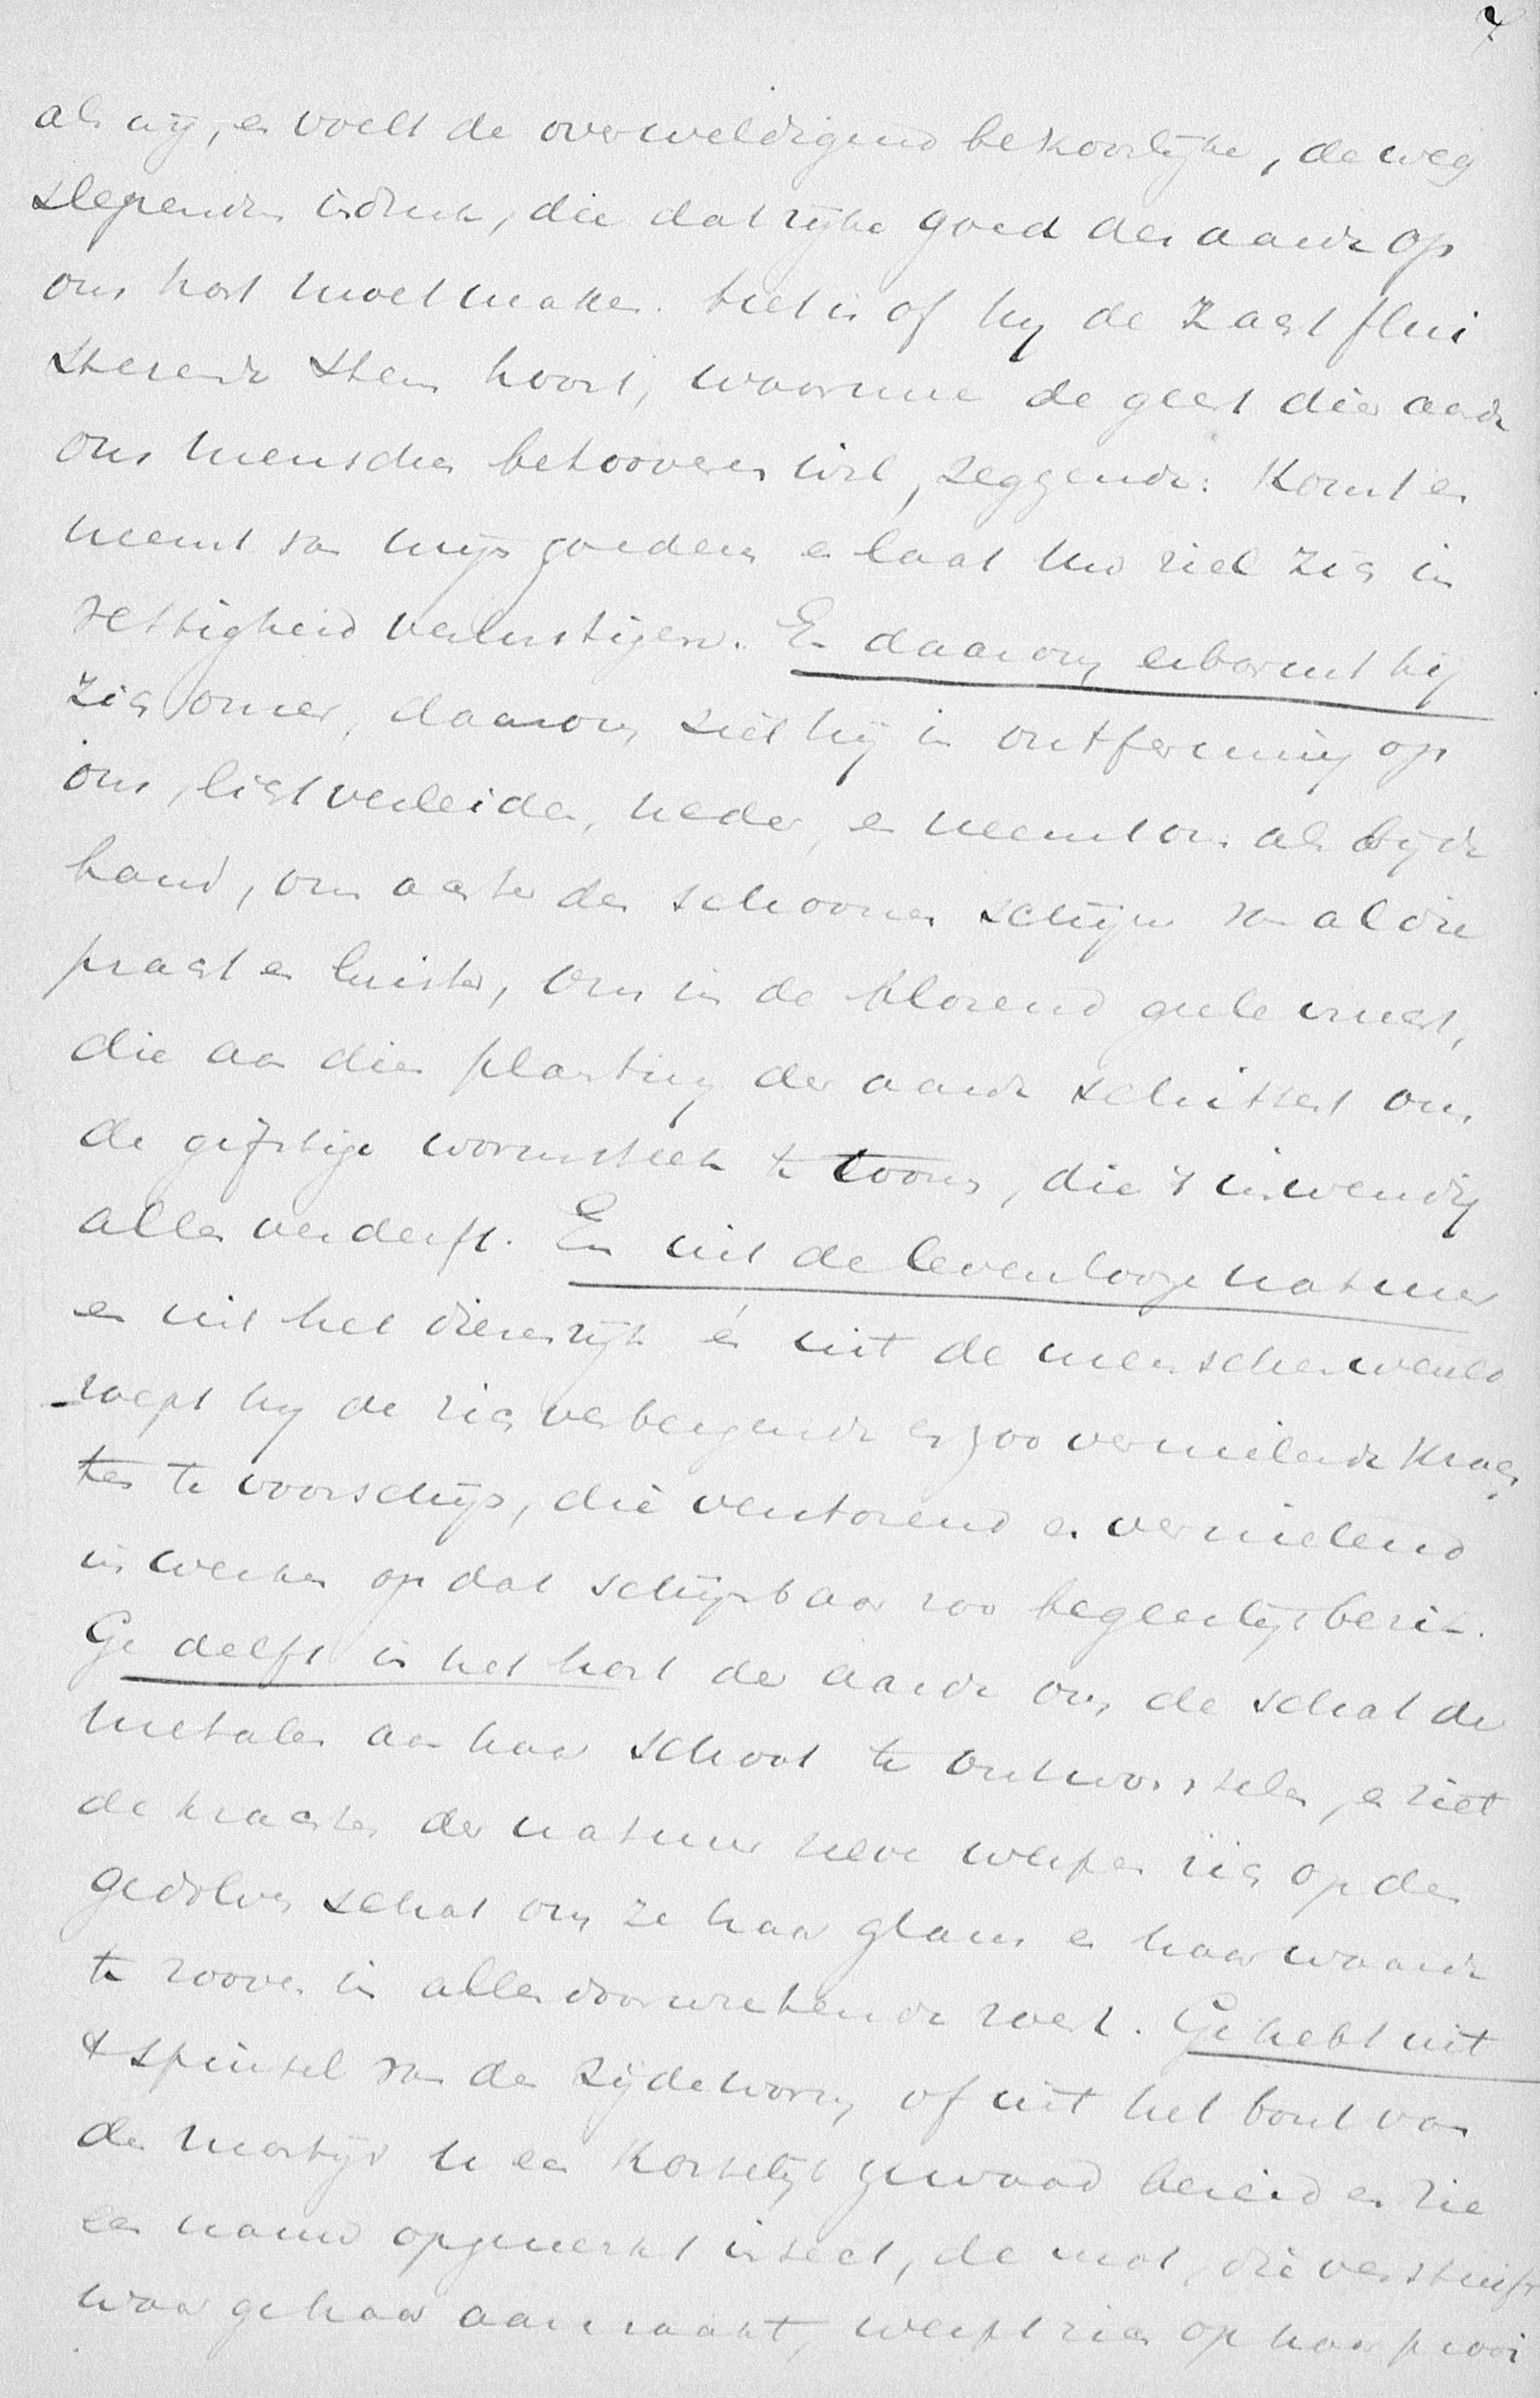 7
als wij, en voelt de overweldigend bekoorlijke, de weg
slependen indruk, die dat rijke goed der aarde op
ons hart moet maken. Het is of hij de zacht flui
sterende stem hoort, waarmee de geest dier aarde
ons menschen betooveren wil, zeggende: Komt en
neemt van mijn goederen en laat uw ziel zich in
vettigheid verlustigen. En daarom erbarmt hij
zich onzer, daarom ziet hij in ontferming op
ons, licht verleiden, neder, en neemt ons als bij de
hand, om achter den schoonen schijn van al die
pracht en luister, om in de blozend gele vrucht,
die aan die planting der aarde schittert ons
de giftige wormsteek te toonen, die 't inwendig
alles verderft. En uit de levenlooze natuur
en uit het dierenrijk én uit de menschenwereld
roept hij de zich verbergende en zoo vernielende krach
ten te voorschijn, die verstorend en vernielend
inwerken op dat schijnbaar zoo begeerlijk bezit.
Ge delft in het hart der aarde om de schat der
metalen aan haar schoot te ontworstelen, en ziet
de krachten der natuur zelve werpen zich op den
gedolven schat om ze haar glans en haar waarde
te rooven in alles doorvretende roest. Ge hebt uit
't spinsel van den zijdeworm of uit het bont van
den marter u een kostelijk gewaad bereid en zie
een nauw opgemerkt insect, de mot, die verstuift
waar ge haar aanraakt, werpt zich op haar prooi